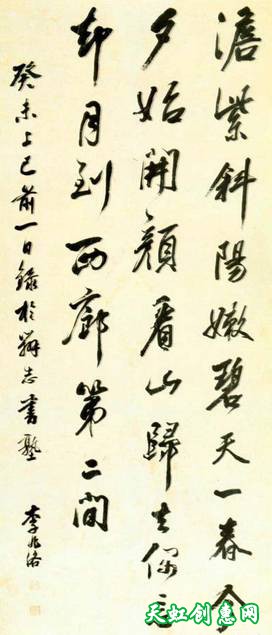 澹紫斜陽嫩碧天一春今
夕始開顏看山歸去偶忘
却月到西廊第二間
癸未上巳前一日錄於辨志書塾
李兆洛
天虹创惠网